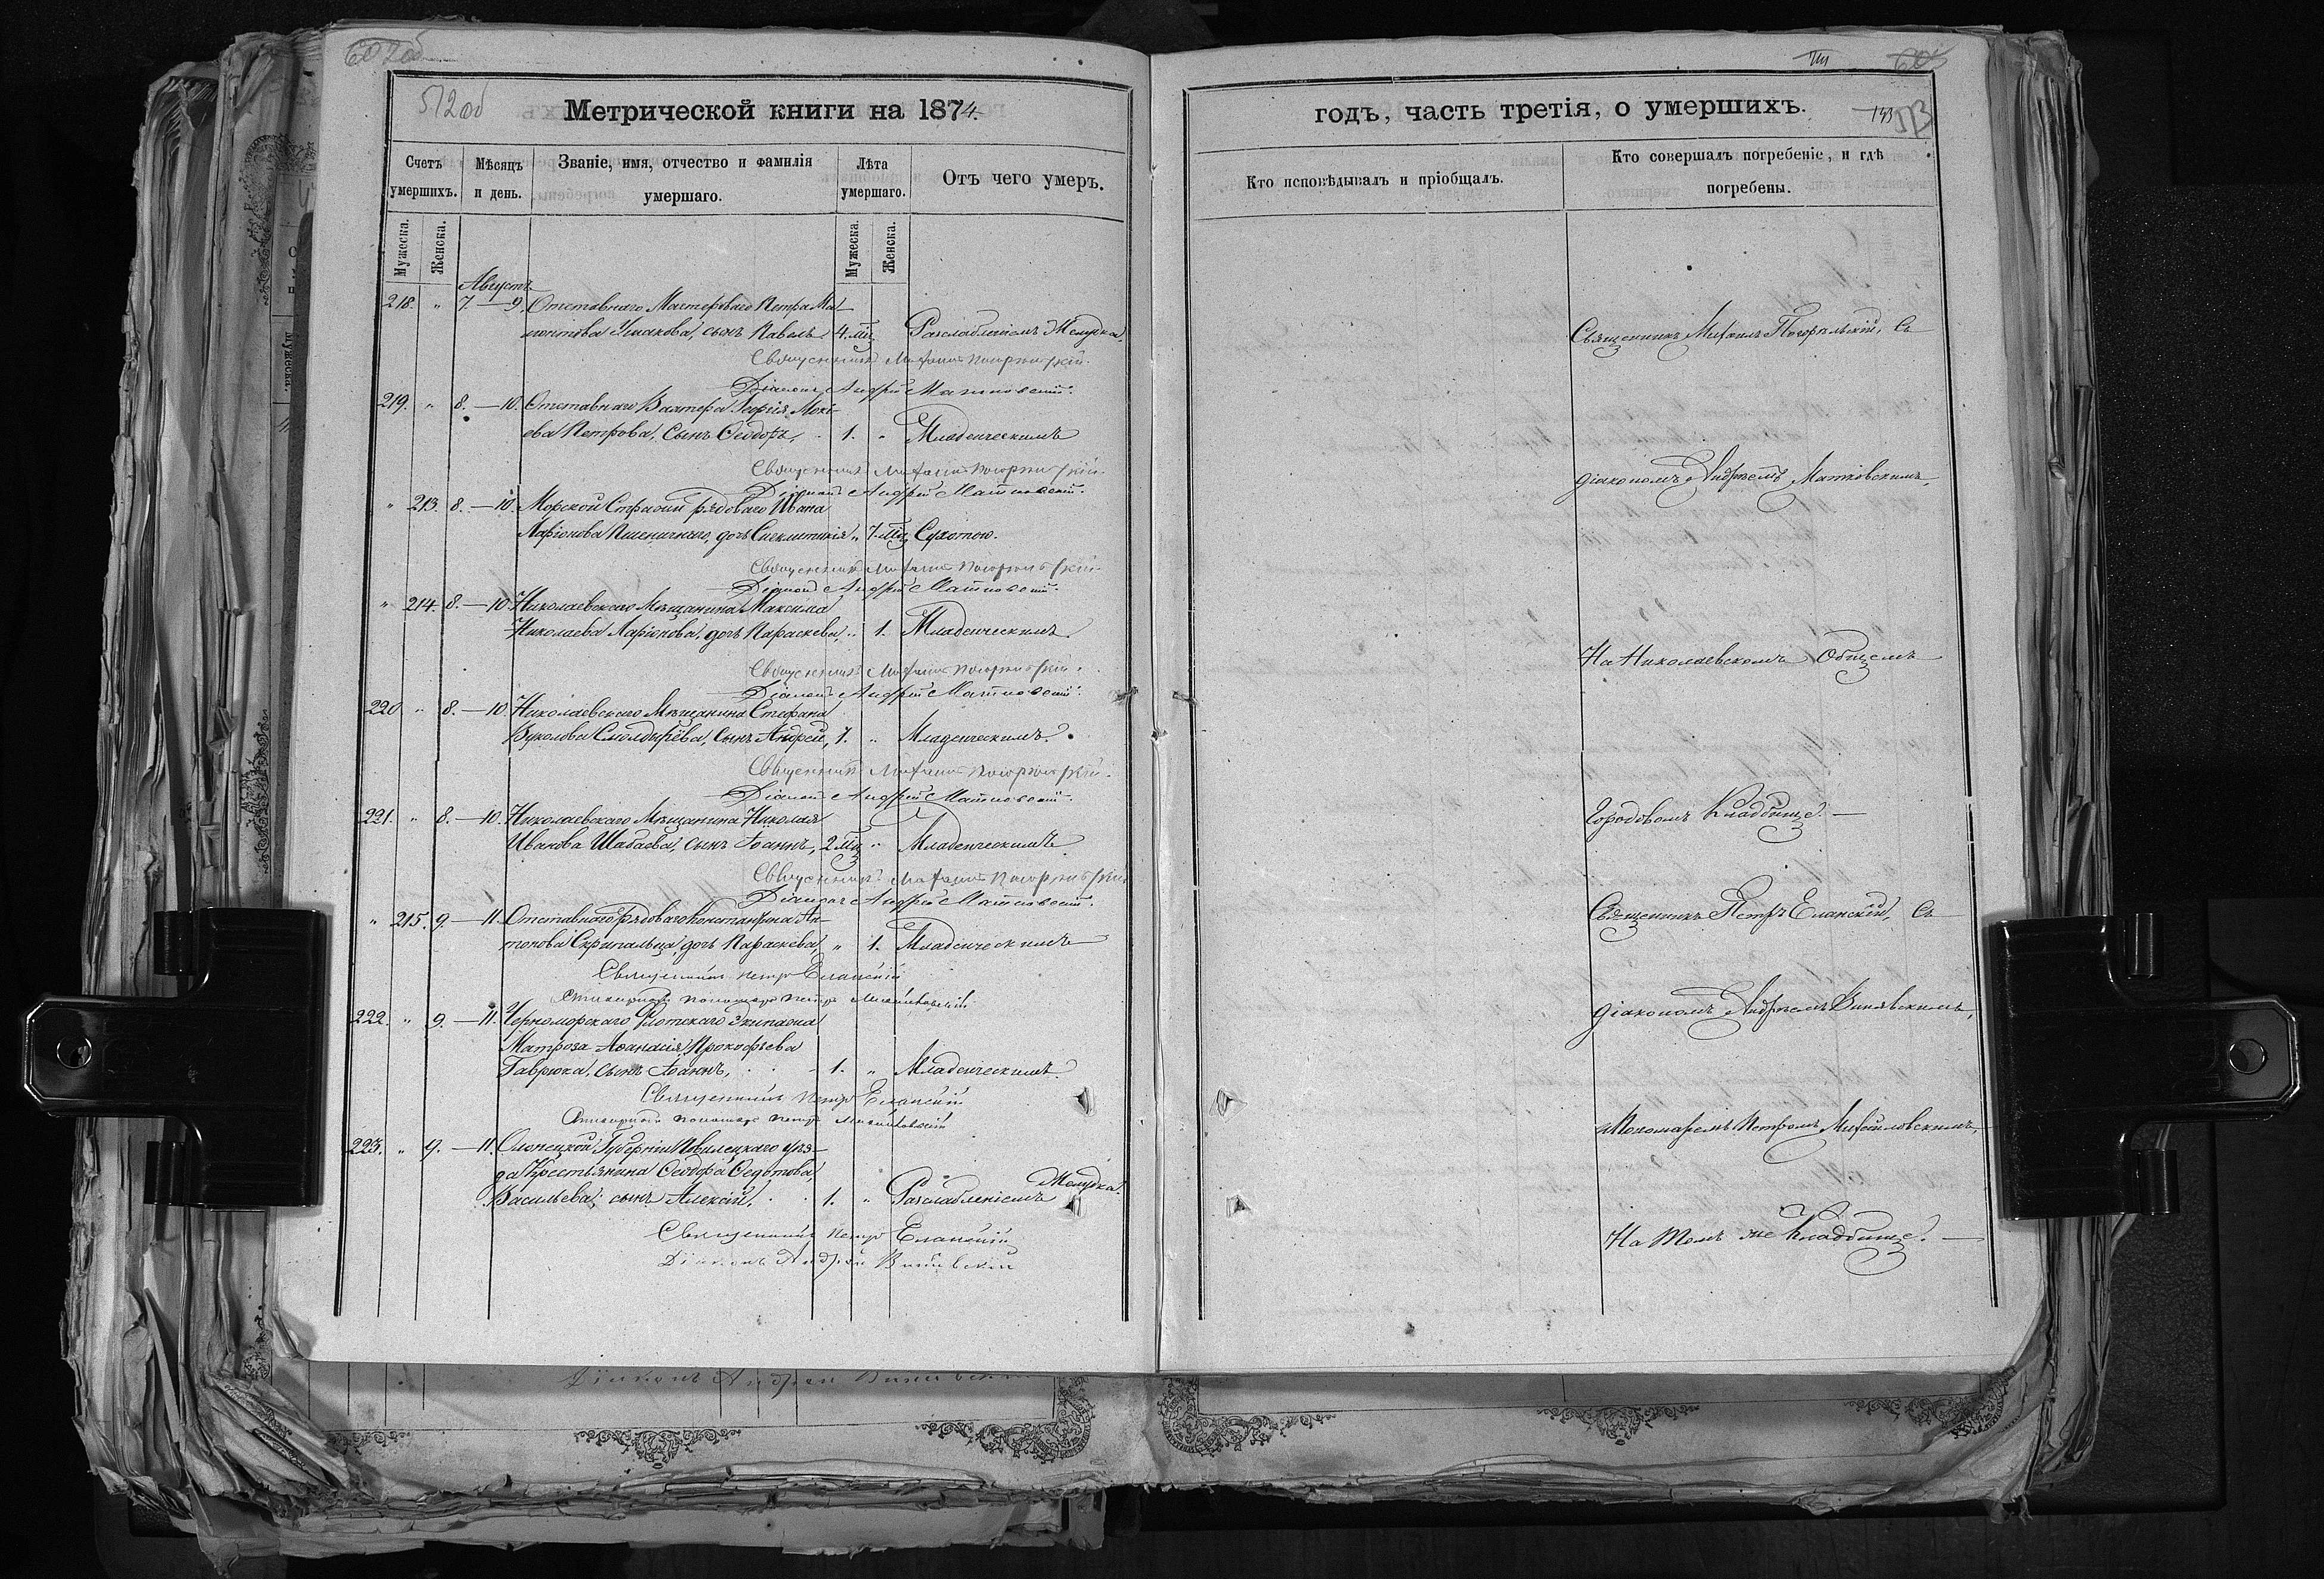 602 об
512 об
Метрической книги на 1874
Счетъ умершихъ.
Мѣсяцъ и день.
Званіе, имя, отчество и фамилія умершаго.
Лѣта умершаго.
Отъ чего умеръ.
Мужеска.
Женска.
Мужеска.
Женска.
Августъ
218. " 7.—9. Отставнаго Мастероваго Петра Ма-
монтова Ушакова, сынъ Павелъ 4. мц. Разслабленіемъ Желудка.
Священникъ Михаилъ Погорѣльскій.
Діаконъ Андрей Матковскій.
219. " 8.—10. Отставнаго Вахтера Георгія Моки-
ева Петрова, сынъ Ѳеодоръ, 1. " Младенческимъ
Священникъ Михаилъ Погорѣльскій.
Діаконъ Андрей Матковскій.
" 213. 8.—10. Морской рядоваго Ивана
Ларіонова Пшеничнаго, дочь Синклитикія " 7. мц. Сухотою.
Священникъ Михаилъ Погорѣльскій.
Діаконъ Андрей Матковскій.
" 214. 8.—10. Николаевскаго Мѣщанина Максима
Николаева Ларіонова, дочь Параскева, " 1. Младенческимъ.
Священникъ Михаилъ Погорѣльскій.
Діаконъ Андрей Матковскій.
220 " 8.—10. Николаевскаго Мѣщанина Стефана
Вуколова сынъ Андрей, 1. " Младенческимъ.
Священникъ Михаилъ Погорѣльскій.
Діаконъ Андрей Матковскій.
221. " 8.—10. Николаевскаго Мѣщанина Николая
Иванова Шабаева, сынъ Іоаннъ, 2 мц. " Младенческимъ
Священникъ Михаилъ Погорѣльскій
Діаконъ Андрей Матковскій.
" 215. 9.—11. Отставнаго рядоваго Константина Ан-
тонова Скрипальца, дочь Параскева, " 1. Младенческимъ
Священникъ Петръ Еланскій
Стихарный пономарь Петръ Михайловскій
222. " 9.—11. Черноморскаго Флотскаго Экипажа
Матроза Аѳанасія Прокофьева
Гаврюка, сынъ Іоаннъ, 1. " Младенческимъ.
Священникъ Петръ Еланскій
Стихарный пономарь Петръ Михайловскій
223. " 9.—11. Олонецкой Губерніи уѣз-
да Крестьянина Ѳеодора Ѳедотова
Васильева, сынъ Алексій, 1. " Разслабленіемъ Желудка.
Священникъ Петръ Еланскій
Діаконъ Андрей Виневскій
годъ, часть третія, о умершихъ.
513
Кто исповѣдывалъ и пріобщалъ.
Кто совершалъ погребеніе, и гдѣ погребены.
Священникъ Михаилъ Погорѣльскій, съ
діакономъ Андреемъ Матковскимъ,
На Николаевскомъ Общемъ
Городовомъ Кладбище.—
Священникъ Петръ Еланскій, съ
діакономъ Андреемъ Виневскимъ,
и Пономаремъ Петромъ Михайловскимъ,
На томъ же Кладбище.—
Діаконъ Андрей Виневскій